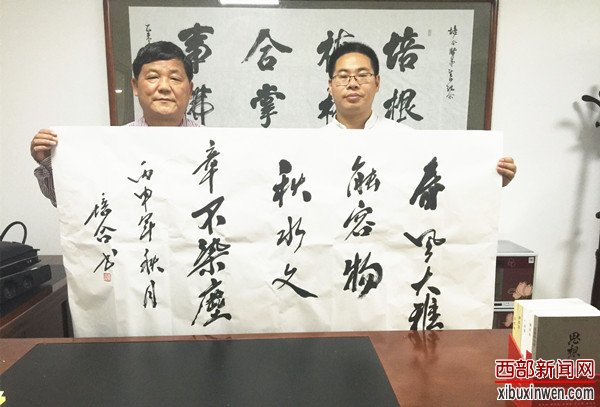 培根
合掌
春風大雅
能容物
秋水文
章不染塵
丙申年秋月
培合书
思根
西部新闻网
xibuxinwen.com